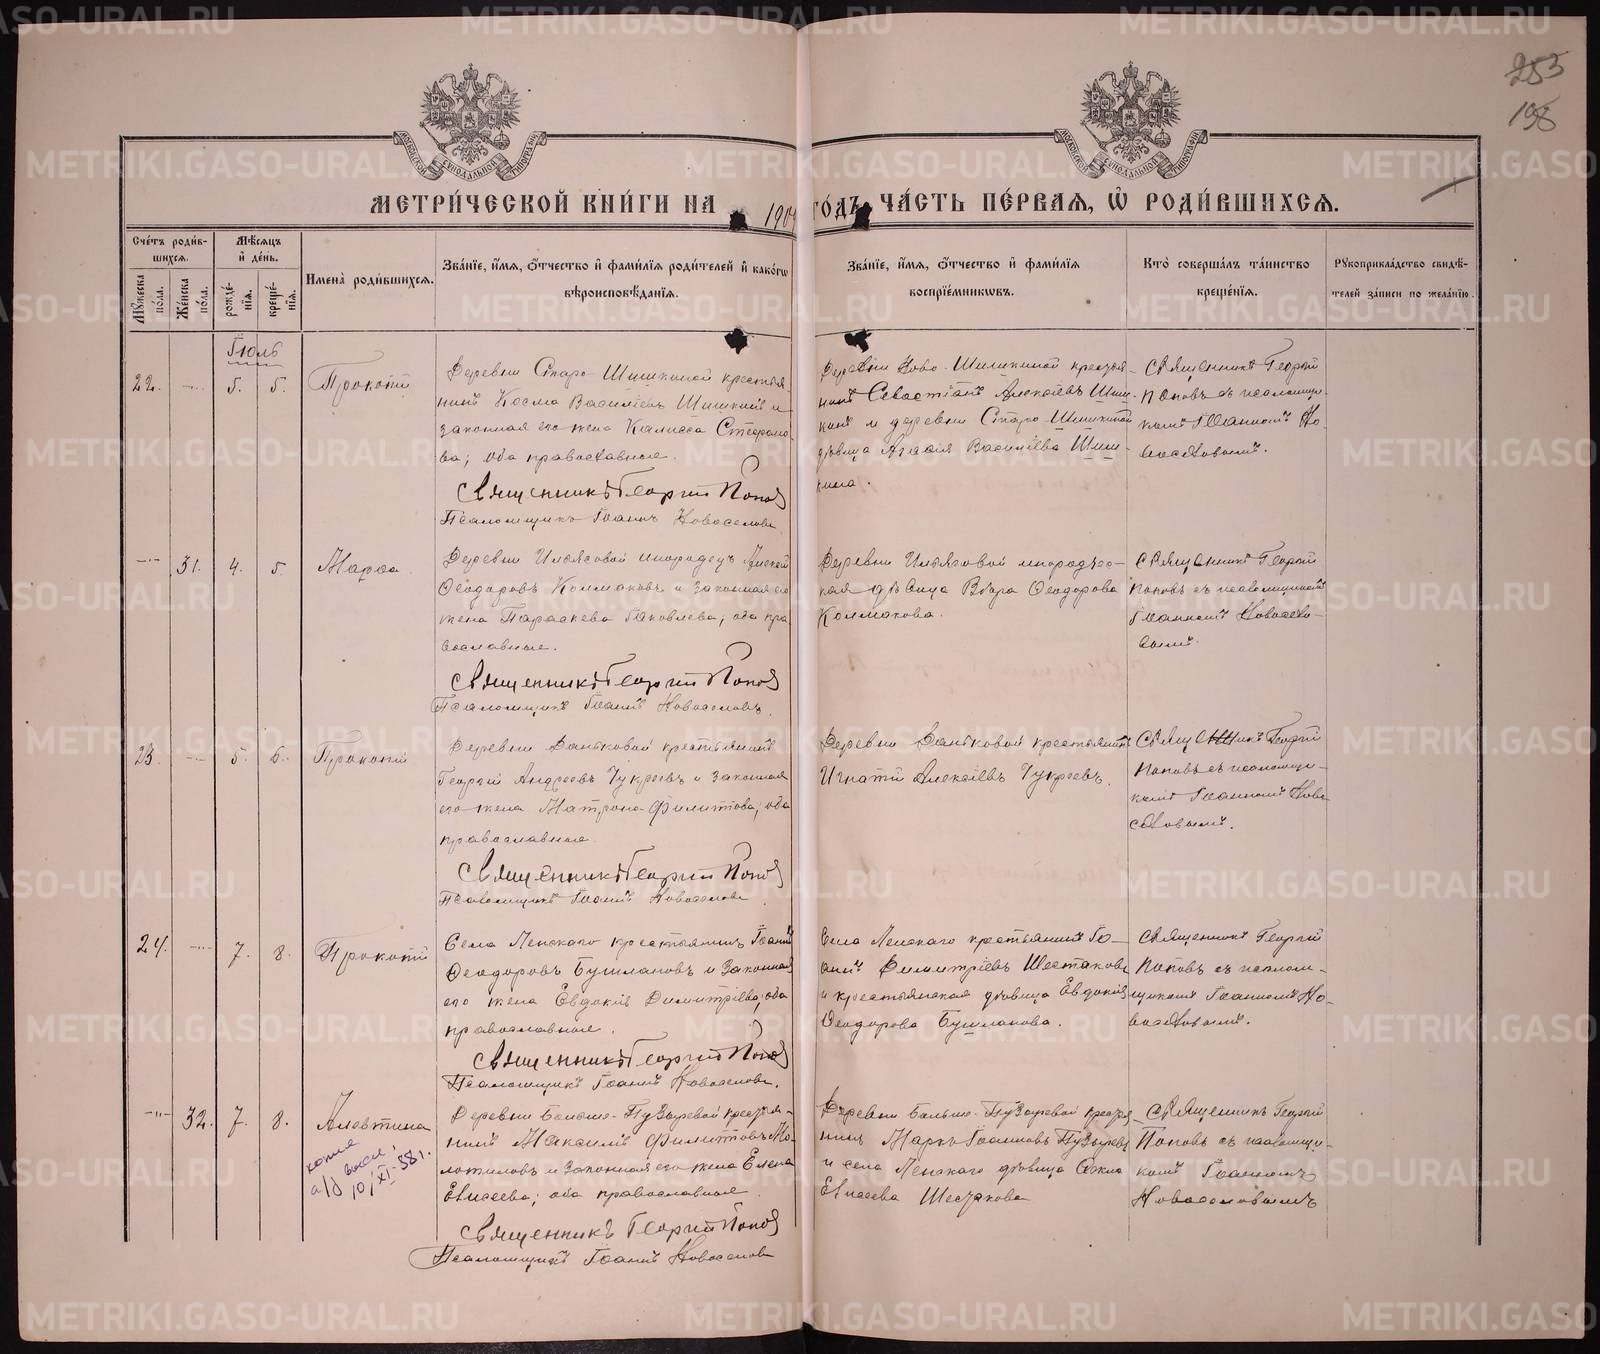 253
198
МЕТРИ́ЧЕСКОЙ КНИ́ГИ НА 1904 ГО́ДЪ ЧА́СТЬ ПЕ́РВАЯ, Ѡ РОДИ́ВШИХСЯ.
Сче́тъ роди́вшихся.
Му́жеска по́ла.
Же́нска по́ла.
Мѣ́сяцъ и де́нь.
рожде́нія.
креще́нія.
Имена̀ роди́вшихся.
Зва́ніе, и́мя, о́тчество и фами́лія роди́телей и како́гѡ вѣроисповѣ́данія.
Зва́ніе, и́мя, о́тчество и фами́лія воспріе́мниковъ.
Кто̀ соверша́лъ та́инство креще́нія.
Рукоприкла́дство свидѣ́телей за́писи по жела́нію.
Іюль
22. 5. 5. Прокопій
Деревни Старо-Шишкиной крестья-
нинъ Косма Василіевъ Шишкинъ и
законная его жена
ва; оба православные.
Священникъ Георгій Поповъ
Псаломщикъ Іоаннъ Новоселовъ
Деревни Ново-Шишкиной крестья-
нинъ Севастіанъ Алексіевъ Шиш-
кинъ и деревни Старо-Шишкиной
дѣвица Агафія Васильева Шиш-
кина.
Священникъ Георгій
Поповъ съ псаломщи-
комъ Іоанномъ Но-
воселовымъ.
31. 4. 5. Марѳа
Деревни Ильясовой инородецъ Алексій
Ѳеодоровъ Колмаковъ и законная его
жена Параскева Іаковлева; оба пра-
вославные.
Священникъ Георгій Поповъ
Псаломщикъ Іоаннъ Новоселовъ.
Деревни Ильясовой инородчес-
кая дѣвица Вѣра Ѳеодорова
Колмакова.
Священникъ Георгій
Поповъ съ псаломщикомъ
Іоанномъ Новосело-
вымъ.
23. 5. 6. Прокопій
Деревни Ваньковой крестьянинъ
Георгій Андреевъ Чукреевъ и законная
его жена Матрона Филиппова; оба
православные
Священникъ Георгій Поповъ
Псаломщикъ Іоаннъ Новоселовъ
Деревни Ваньковой крестьянинъ
Игнатій Алексіевъ Чукреевъ.
Священникъ Георгій
Поповъ съ псаломщи-
комъ Іоанномъ Ново-
селовымъ.
24. 7. 8. Прокопій
Села Ленскаго крестьянинъ Іоаннъ
Ѳеодоровъ Бушлановъ и законная
его жена Евдокія Димитріева; оба
православные.
Священникъ Георгій Поповъ
Псаломщикъ Іоаннъ Новоселовъ.
Села Ленскаго крестьянинъ Іо-
аннъ Димитріевъ Шестаковъ
и крестьянская дѣвица Евдокія
Ѳеодорова Бушланова.
Священникъ Георгій
Поповъ съ псалом-
щикомъ Іоанномъ Но-
воселовымъ.
32. 7. 8. Алевтина
копія
10/XI-58 г.
Деревни Больше-Пузыревой крестья-
нинъ Максимъ Филипповъ Мо-
лотиловъ и законная его жена Елена
Елисеева; оба православные.
Священникъ Георгій Поповъ
Псаломщикъ Іоаннъ Новоселовъ
Деревни Больше-Пузыревой крестья-
нинъ Маркъ Іоанновъ Пузыревъ
и села Ленскаго дѣвица
Елисеева Шестакова
Священникъ Георгій
Поповъ съ псаломщи-
комъ Іоанномъ
Новоселовымъ